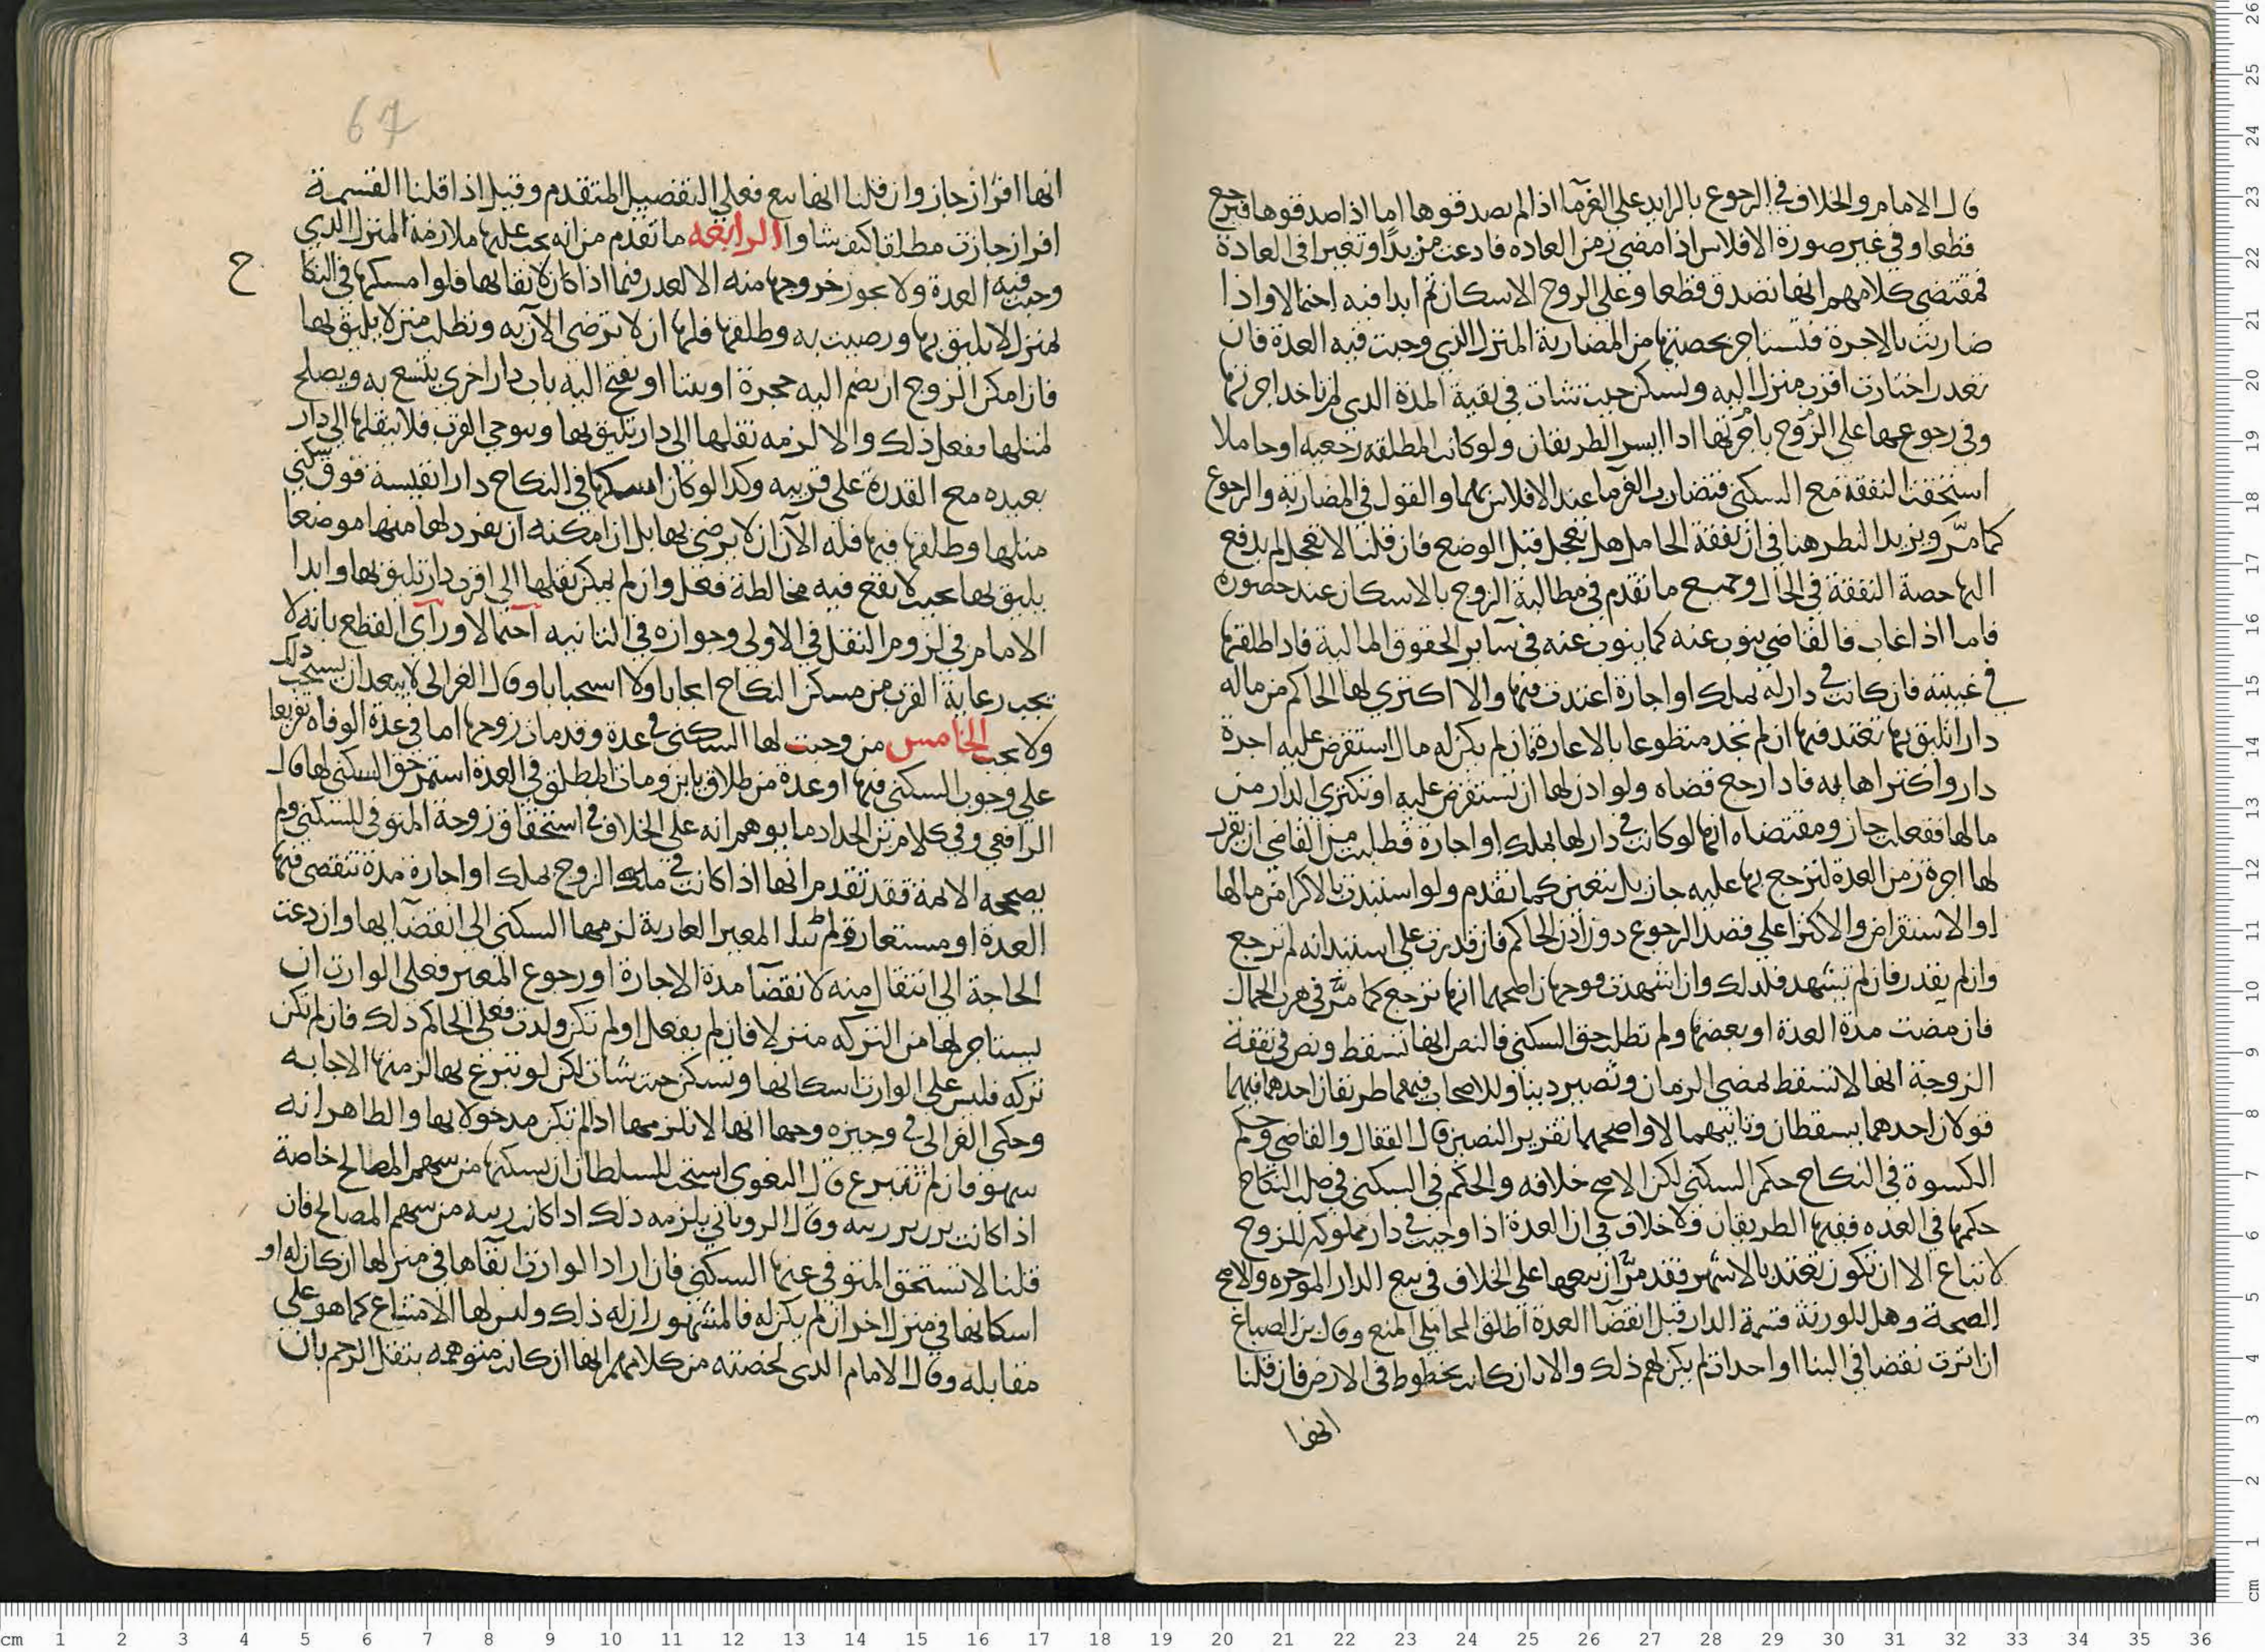 قال الامام والخلاف في الرجوع بالزايد على الغرما اذا لم يصدقوها اما اذا صدقوها فترجع
قطعا وفي غير صورة الافلاس اذا مضى زمن العاده فادعت مزيدا وتغيرا في العادة
فمقتضى كلامهم انها تصدق قطعا وعلى الزوج الاسكان ثم ابدا فيه احتمالا واذا
ضاربت بالاجرة فلتستاجر بحصتها من المضاربة المنزل الذي وجبت فيه العدة فان
تعدر اختارت اقرب منزل اليه ولتسكن حيث شات في بقية المدة الدي لم تاخد اجرتها
وفي رجوعها على الزوج باجرتها ادا ايسر الطريقان ولو كانت المطلقه رجعيه او حاملا
استحقت النفقة مع السكنى فتضارب الغرما عند الافلاس بهما والقول في المضاربة والرجوع
كما مر ويزيد النظر هنا في ان نفقة الحامل هل تعجل قبل الوضع فان قلنا لا تعجل لم يدفع
اليها حصة النفقة في الحال وجميع ما تقدم في مطالبة الزوج بالاسكان عند حضوره
فاما اذا غاب فالقاضي ينوب عنه كما ينوب عنه في سآير الحقوق المالية فادا طلقها
في غيبته فان كانت في دار له بملك او اجارة اعتدت فيها والا اكترى لها الحاكم من ماله
دارا تليق بها تعتد فيها ان لم تجد متطوعا بالاعارة فان لم يكن له مال استقرض عليه اجرة
دار واكتراها به فادا رجع قضاه ولو ادن لها ان تستقرض عليه او تكتري الدار من
مالها ففعلت جاز ومقتضاه انها لو كانت في دار لها بملك او اجارة فطلبت من القاضي ان يقرر
لها اجرة زمن العدة لترجع بها عليه جاز بل يتعين كما تقدم ولو استبدت بالاكرا من مالها
او الاستقراض والاكترا على قصد الرجوع دون اذن الحاكم فان قدرت على استيدانه لم ترجع
وان لم يقدر فان لم تشهد فلدلك وان اشهدت فوجهان اصحهما انها ترجع كما مر في هرب الجمال
فان مضت مدة العدة او بعضها ولم تطلب حق السكنى فالنص انها تسقط ونص في نفقة
الزوجة انها لا تسقط بمضي الزمان وتصير دينا وللاصحاب فيهما طريقان احدهما فيهما
قولان احدهما يسقطان وثانيهما لا واصحهما تقرير النصين قال القفال والقاضي وحكم
الكسوة في النكاح حكم السكنى لكن الاصح خلافه والحكم في السكنى في صلب النكاح
حكمها في العده ففيها الطريقان ولا خلاف في ان العدة اذا وجبت في دار مملوكه للزوج
لا تباع الا ان تكون تعتد بالاشهر فقد مر ان بيعها على الخلاف في بيع الدار الموجره والاصح
الصحة وهل للورثة قسمة الدار قبل انقضآ العدة اطلق المحاملي المنع وقال بن الصباغ
ان اثرت نقضا في البنا او احداث لم يكن لهم ذلك والا بان كانت بخطوط في الارض فان قلنا
انها
67
انها افراز جاز وان قلنا انها بيع فعلى التفصيل المتقدم وقيل اذا قلنا القسمة
افراز جازت مطلقا كيف شاوا الرابعه ما تقدم من انه يجب عليها ملازمة المنزل الذي
وجبت فيه العدة ولا يجوز خروجها منه الا لعدر فيما اذا كان لايقا بها فلوا مسكنها في النكا
ح
بمنزل لا يليق بها ورضيت به وطلقها فلها ان لا ترضى الآن به وتطلب منزلا يليق بها
فان امكن الزوج ان يضم اليه حجرة او بيتا او يفتح اليه باب دار اخرى يتسع به ويصلح
لمثلها ففعل ذلك والا لزمه نقلها الى دار تليق بها ويتوخى القرب فلا ينقلها الى دار
بعيده مع القدرة على قريبه وكدا لو كان اسكنها في النكاح دارا نفيسة فوق سكنى
مثلها وطلقها فيها فله الآن ان لا يرضى بها بل ان امكنه ان يفرد لها منها موضعا
يليق بها بحيث لا يقع فيه مخالطة فعل وان لم يمكن نقلها الى اقرب دار تليق بها وابدا
الامام في لزوم النقل في الاولى وجوازه في الثانيه احتمالا وراى القطع بانه لا
يجب رعاية القرب من مسكن النكاح ايجابا ولا استحبابا وقال الغزالي لا يبعد ان يستحب ذلك
ولا يجب الخامس من وجبت لها السكنى في عدة وقد مات زوجها اما في عدة الوفاه تفريعا
على وجوب السكنى فيها او عدة من طلاق باين ومات المطلق في العدة استمر حق السكنى لها قال
الرافعي وفي كلام بن الحداد ما يوهم انه على الخلاف في استحقاق زوجة المتوفى للسكنى ولم
يصححه الائمة فقد تقدم انها اذا كانت في ملك الزوج بملك او اجارة مدة تنقضي فيها
العدة او مستعارة ولم المعير العارية لزمها السكنى الى انقضآيها وان دعت
الحاجة الى انتقال منه لانقضآ مدة الاجارة او رجوع المعير فعلى الوارث ان
يستاجر لها من التركه منزلا فان لم يفعل او لم تكن ولدت فعلى الحاكم ذلك فان لم تكن
تركه فليس على الوارث اسكانها وتسكن حيث شات لكن لو تبرع بها لزمتها الاجابه
وحكى الغزالي في وجيزه وجها انها لا تلزمها ادا لم تكن مدخولا بها والظاهر انه
سهو فان لم تتبرع قال البغوي استحب للسلطان ان يسكنها من سهم المصالح خاصة
اذا كانت بريبة وقال الروياني يلزمه ذلك ادا كانت ريبه من سهم المصالح فان
قلنا لا تستحق المتوفى عنها السكنى فان ارادا الوارث ابقاها في منزلها ان كان له او
اسكانها في منزل اخر ان لم يكن له فالمشهور ان له ذلك وليس لها الامتناع كما هو على
مقابله وقال الامام الذي لخصته من كلامهم انها ان كانت متوهمه بثقل الرحم بان